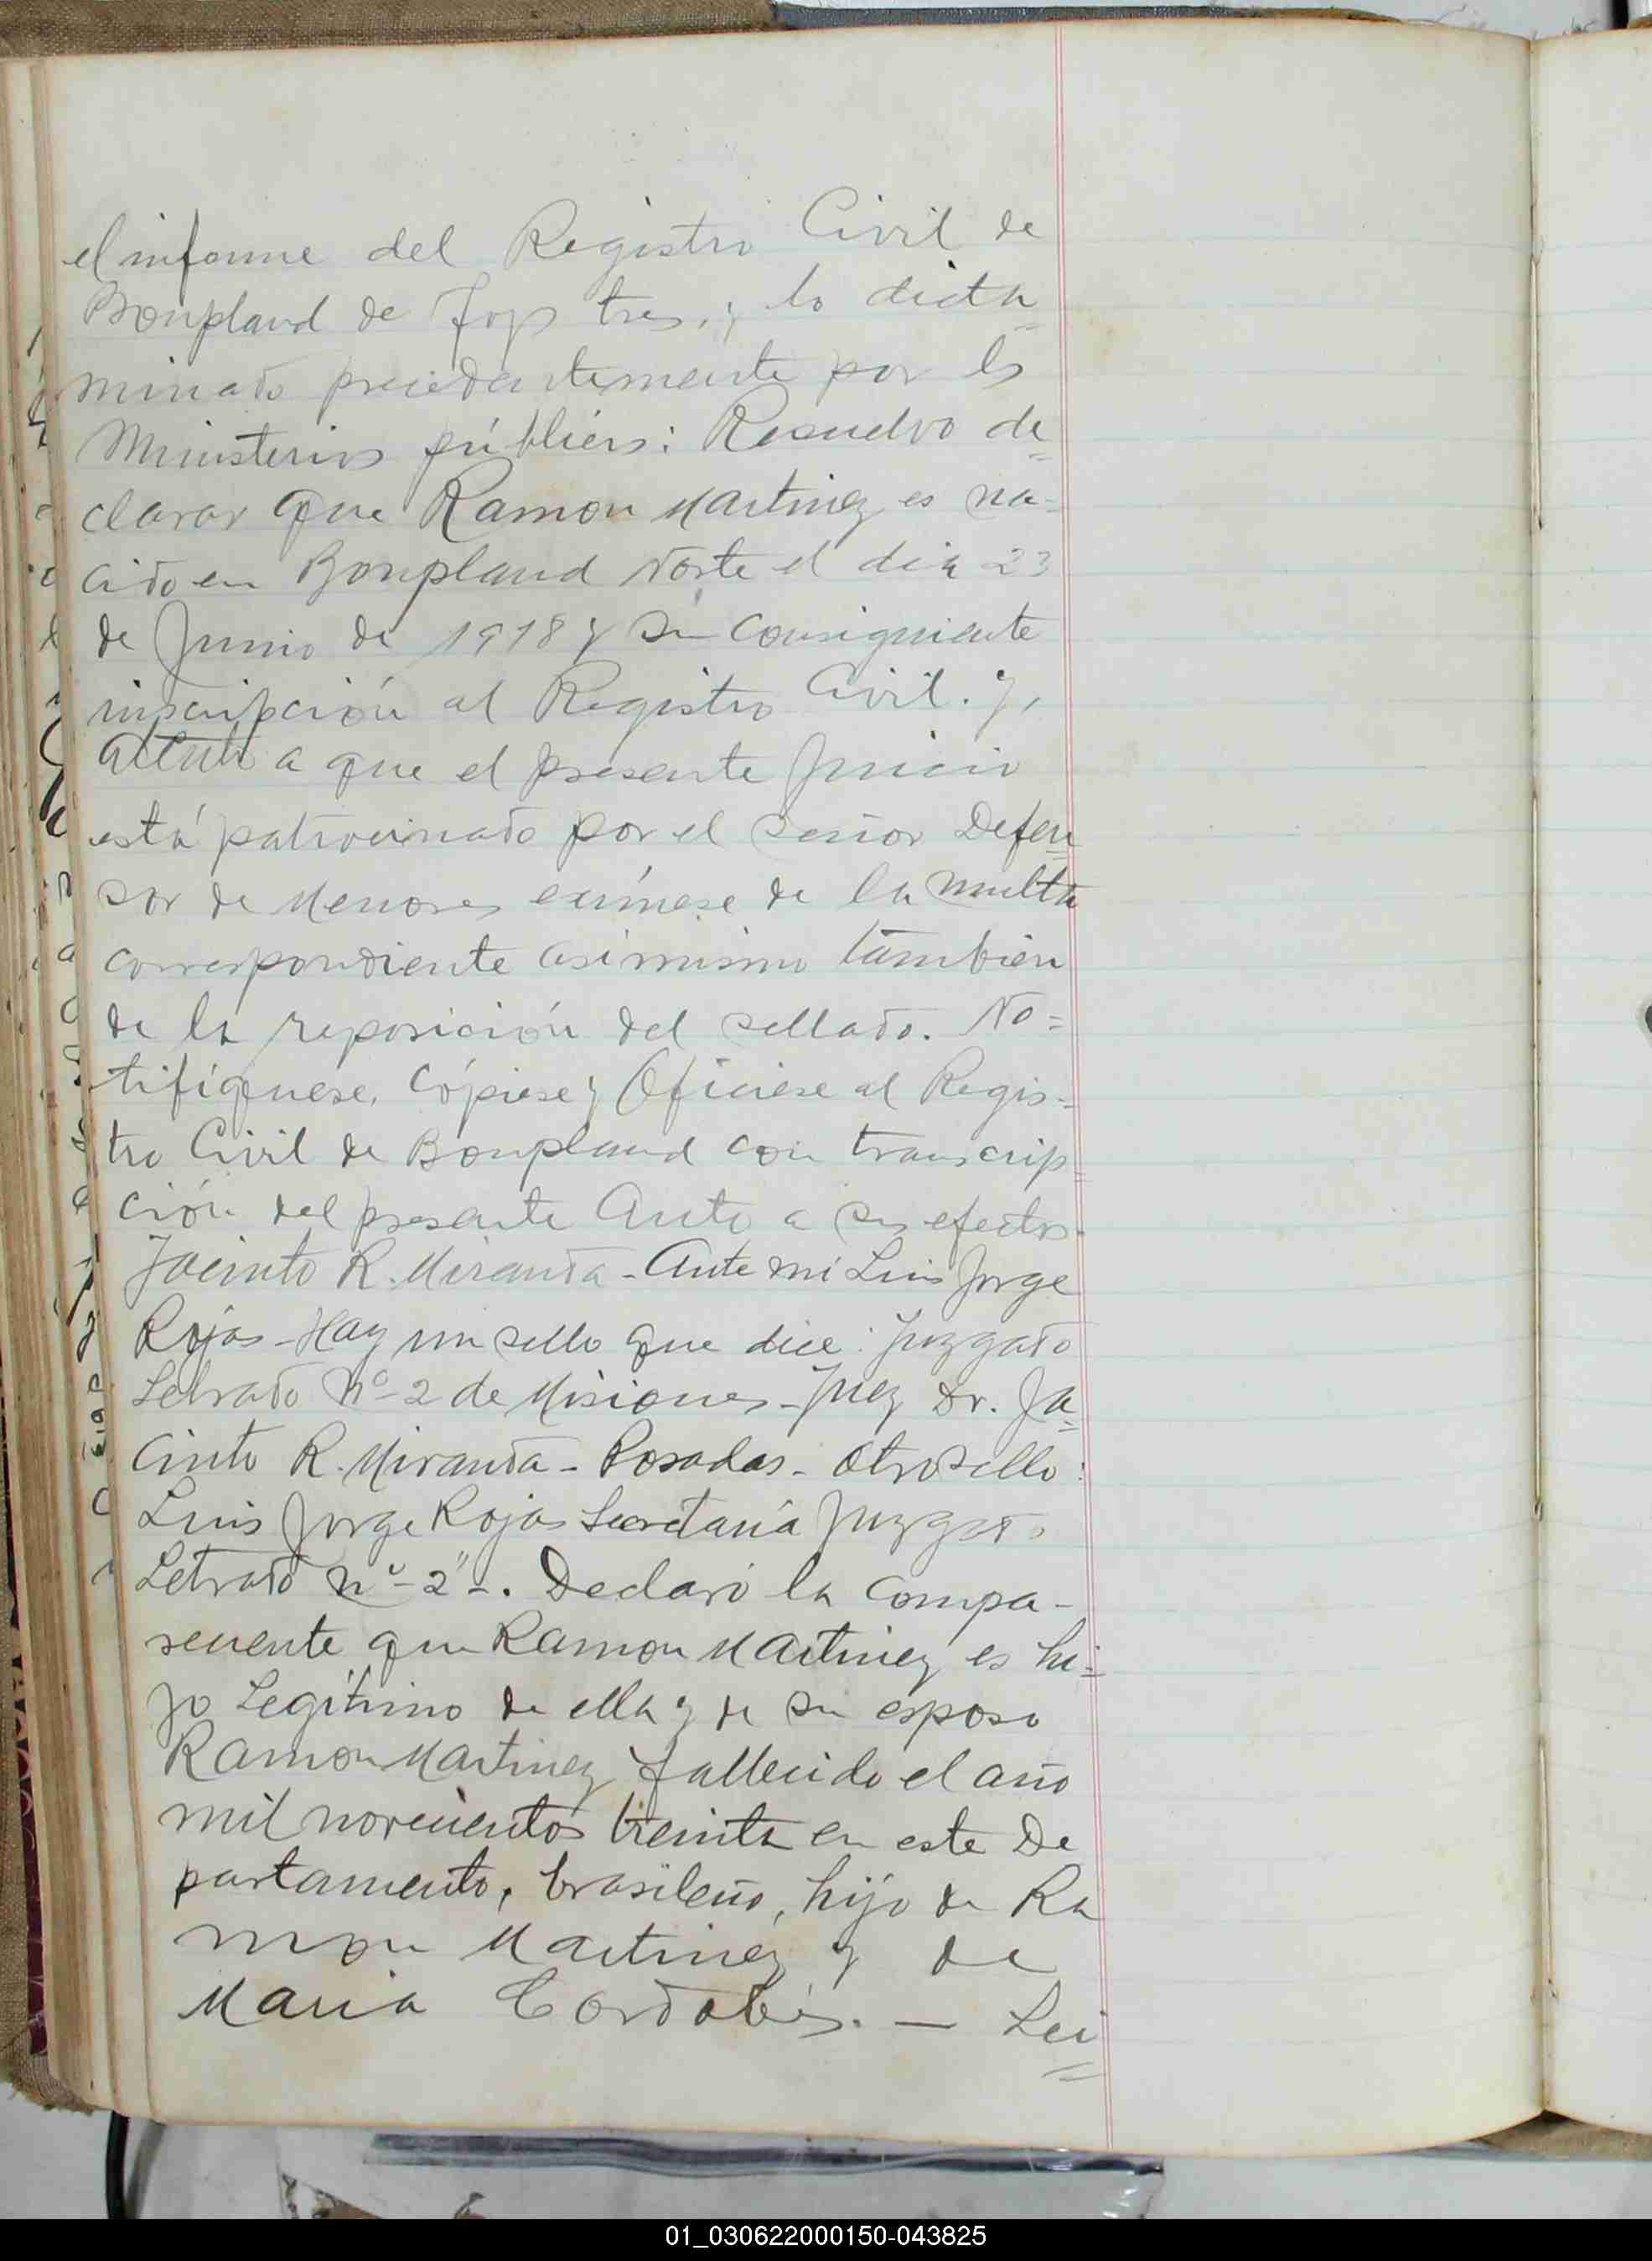 el informe del Registro Civil de
Bonpland de fojs tres, y lo dicta
minado precedentemente por los
Ministerios públicos: Resuelvo de
clarar que Ramon Martinez es na-
cido en Bonpland Norte el dia 23
de Junio de 1918 y su consiguiente
inscripción al Registro Civil. y,
atento a que el presente Juicio
está patrocinado por el señor Defen
sor de Menores exímese de la multa
correspondiente asimismo también
de la reposición del sellado. No=
tifíquese, Cópiese y Ofíciese al Regis=
tro Civil de Bonpland con transcrip
ción del presente Auto a sus efectos.
Jacinto R. Miranda - Ante mi Luis Jorge
Rojas - Hay un sello que dice: Juzgado
Letrado Nº-2 de Misiones - Juez Dr. Ja
cinto R. Miranda - Posadas - Otro sello:
Luis Jorge Rojas Secretaría Juzgado
Letrado nº-2"-. Declaró la compa-
reciente que Ramon Martinez es hi=
jo Legítimo de ella y de su esposo
Ramon Martinez fallecido el año
mil novecientos treinta en este De
partamento, brasileño, hijo de Ra
mon Martinez y de
Maria Cordobés. — Lei
01_030622000150-043825